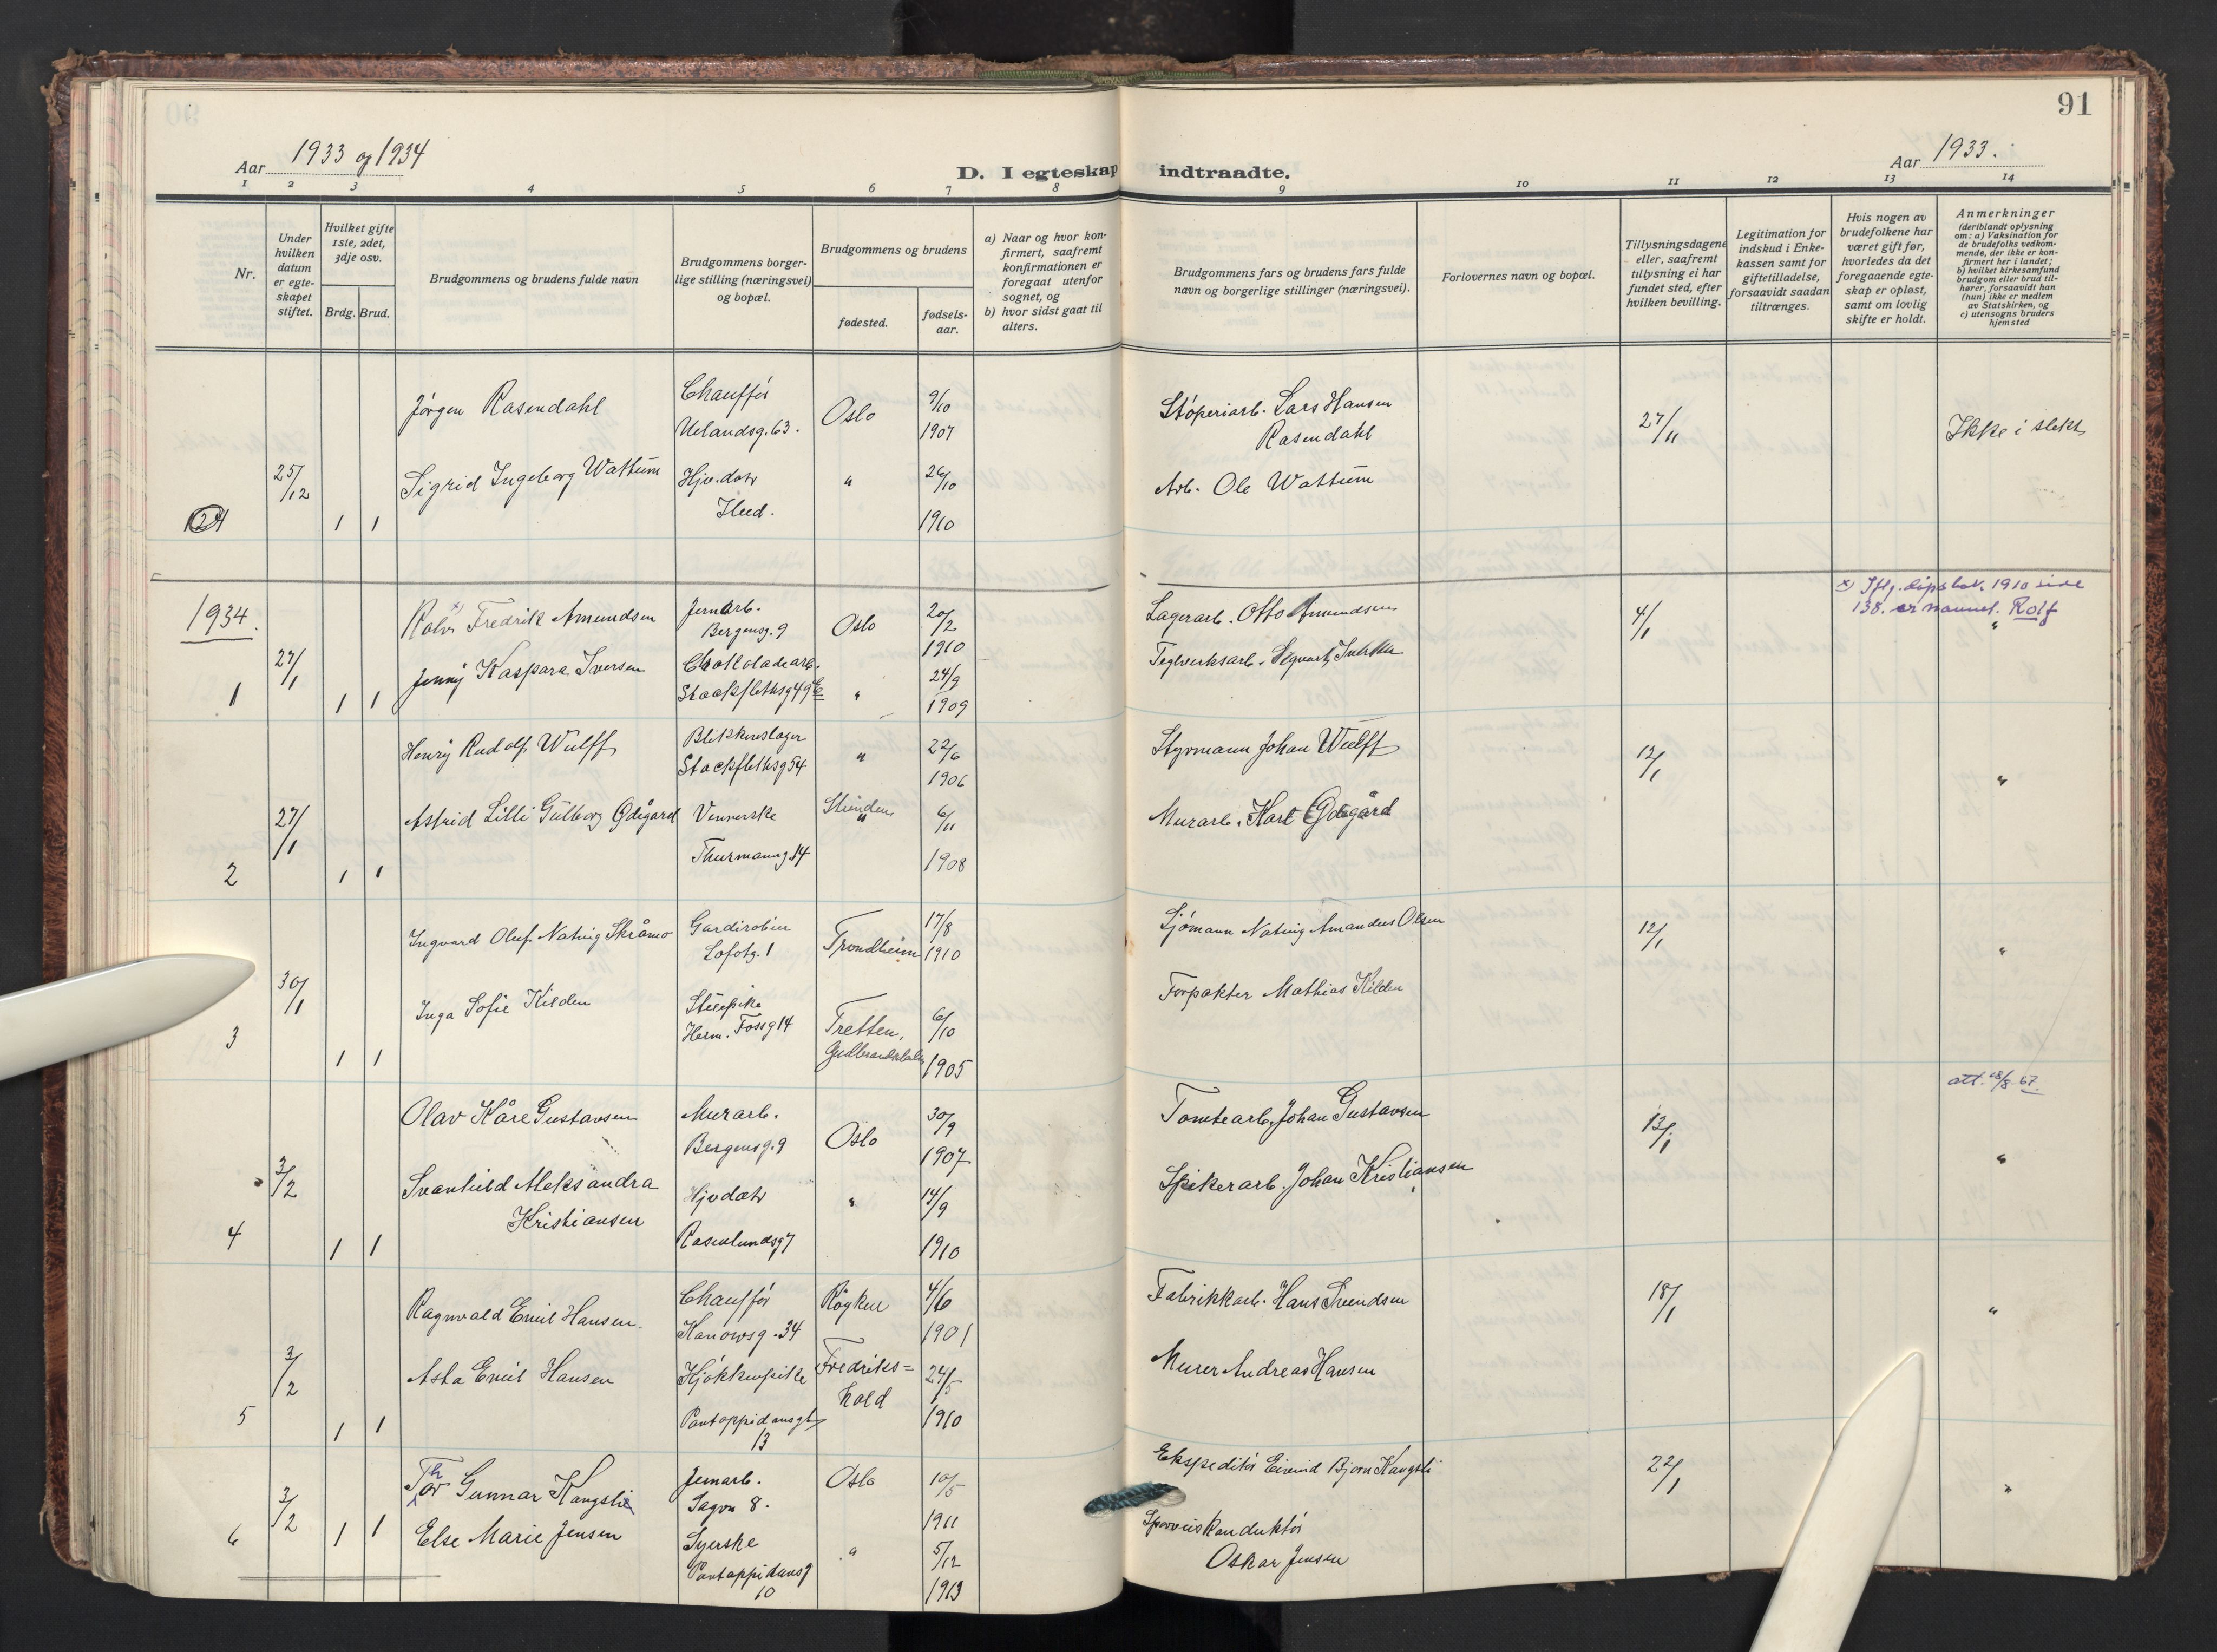 91
Aar 1933 og 1934
D. I egteskap indtraadte.
Aar 1933.
1 2 3 4 5 6 7 8 9 10 11 12 13 14
Nr.
Under hvilken datum er egteskapet stiftet.
Hvilket gifte 1ste, 2det, 3dje osv.
Brdg. Brud.
Brudgommens og brudens fulde navn
Brudgommens borgerlige stilling (næringsvei) og bopæl.
Brudgommens og brudens
fødested.
fødselsaar.
a) Naar og hvor konfirmert, saafremt konfirmationen er foregaat utenfor sognet, og
b) hvor sidst gaat til alters.
Brudgommens fars og brudens fars fulde navn og borgerlige stillinger (næringsvei).
Forlovernes navn og bopæl.
Tillysningsdagene eller, saafremt tillysning ei har fundet sted, efter hvilken bevilling.
Legitimation for indskud i Enkekassen samt for giftetilladelse, forsaavidt saadan tiltrænges.
Hvis nogen av brudefolkene har været gift før, hvorledes da det foregaaende egteskap er opløst, samt om lovlig skifte er holdt.
Anmerkninger
(deriblandt oplysning om: a) Vaksination for de brudefolks vedkommende, der ikke er konfirmert her i landet; b) hvilket kirkesamfund brudgom eller brud tilhører, forsaavidt han (hun) ikke er medlem av Statskirken, og c) utensogns bruders hjemsted
Jørgen Rasendahl Chauffør Uelandsg. 63. Oslo 9/10 1907 Støperiarb. Lars Hansen Rasendahl 27/11 Ikke i slekt
124 25/12 1 1 Sigrid Ingeborg Wattum Hjv. datr " 26/10 1910 Arb. Ole Wattum
1934.
Ralv x) Fredrik Amundsen Jernarb. Bergensg. 9 Oslo 20/2 1910 Lagerarb. Otto Amundsen 4/1 x) Iflg. dåpsbok. 1910 side 138. er navnet. Rolf "
1 27/1 1 1 Jenny Kaspara Iversen Chokoladearb. Stockflethsg 49 " 24/9 1909 Teglverksarb.
Henry Rudolf Wulff Blikkenslager Stockflethsg 54 " 22/6 1906 Styrmann Johan Wulff 12/1 "
2 27/1 1 1 Astrid Lilli Gulborg Ødigård Veverske Thurmanng. 14 6/11 1908 Murarb. Karl Ødegård
Ingvard Oluf Natvig Skråmo Lofotg. 1 Trondheim 17/8 1910 Sjømann Natvig Amandus Olsen 12/1 "
3 30/1 1 1 Inga Sofie Kilden Stuepike Herm. Fossg 14 Tretten, Gudbrandsdalen 6/10 1905 Forpakter Mathias Kilden
att. 18/8-67.
Olav Kåre Gustavsen Murarb. Bergensg. 9 Oslo 30/9 1907 Tomtearb. Johan Gustavsen 13/1 "
4 3/2 1 1 Svanhild Aleksandra Kristiansen Hjv datr Rosenlundsg 7 " 14/9 1910 Spikerarb. Johan Kristiansen
Ragnvald Emil Hansen Chauffør Kanowsg. 34 Røyken 4/6 1901 Fabrikkarb. Hans Svendsen 18/1 "
5 3/2 1 1 Asta Emil Hansen Kjøkkenpike Pontoppidansgt 13 Fredrikshald 24/5 1910 Murer Andreas Hansen
Thor Gunnar Kangsli Jernarb. Sagvn 8. Oslo 10/5 1911 Ekspeditør Eivind Bjorn Kangsli 22/1 "
6 3/2 1 1 Else Marie Jensen Syerske Pontoppidansg 10 " 5/12 1913 Sporveiskonduktør Oskar Jensen